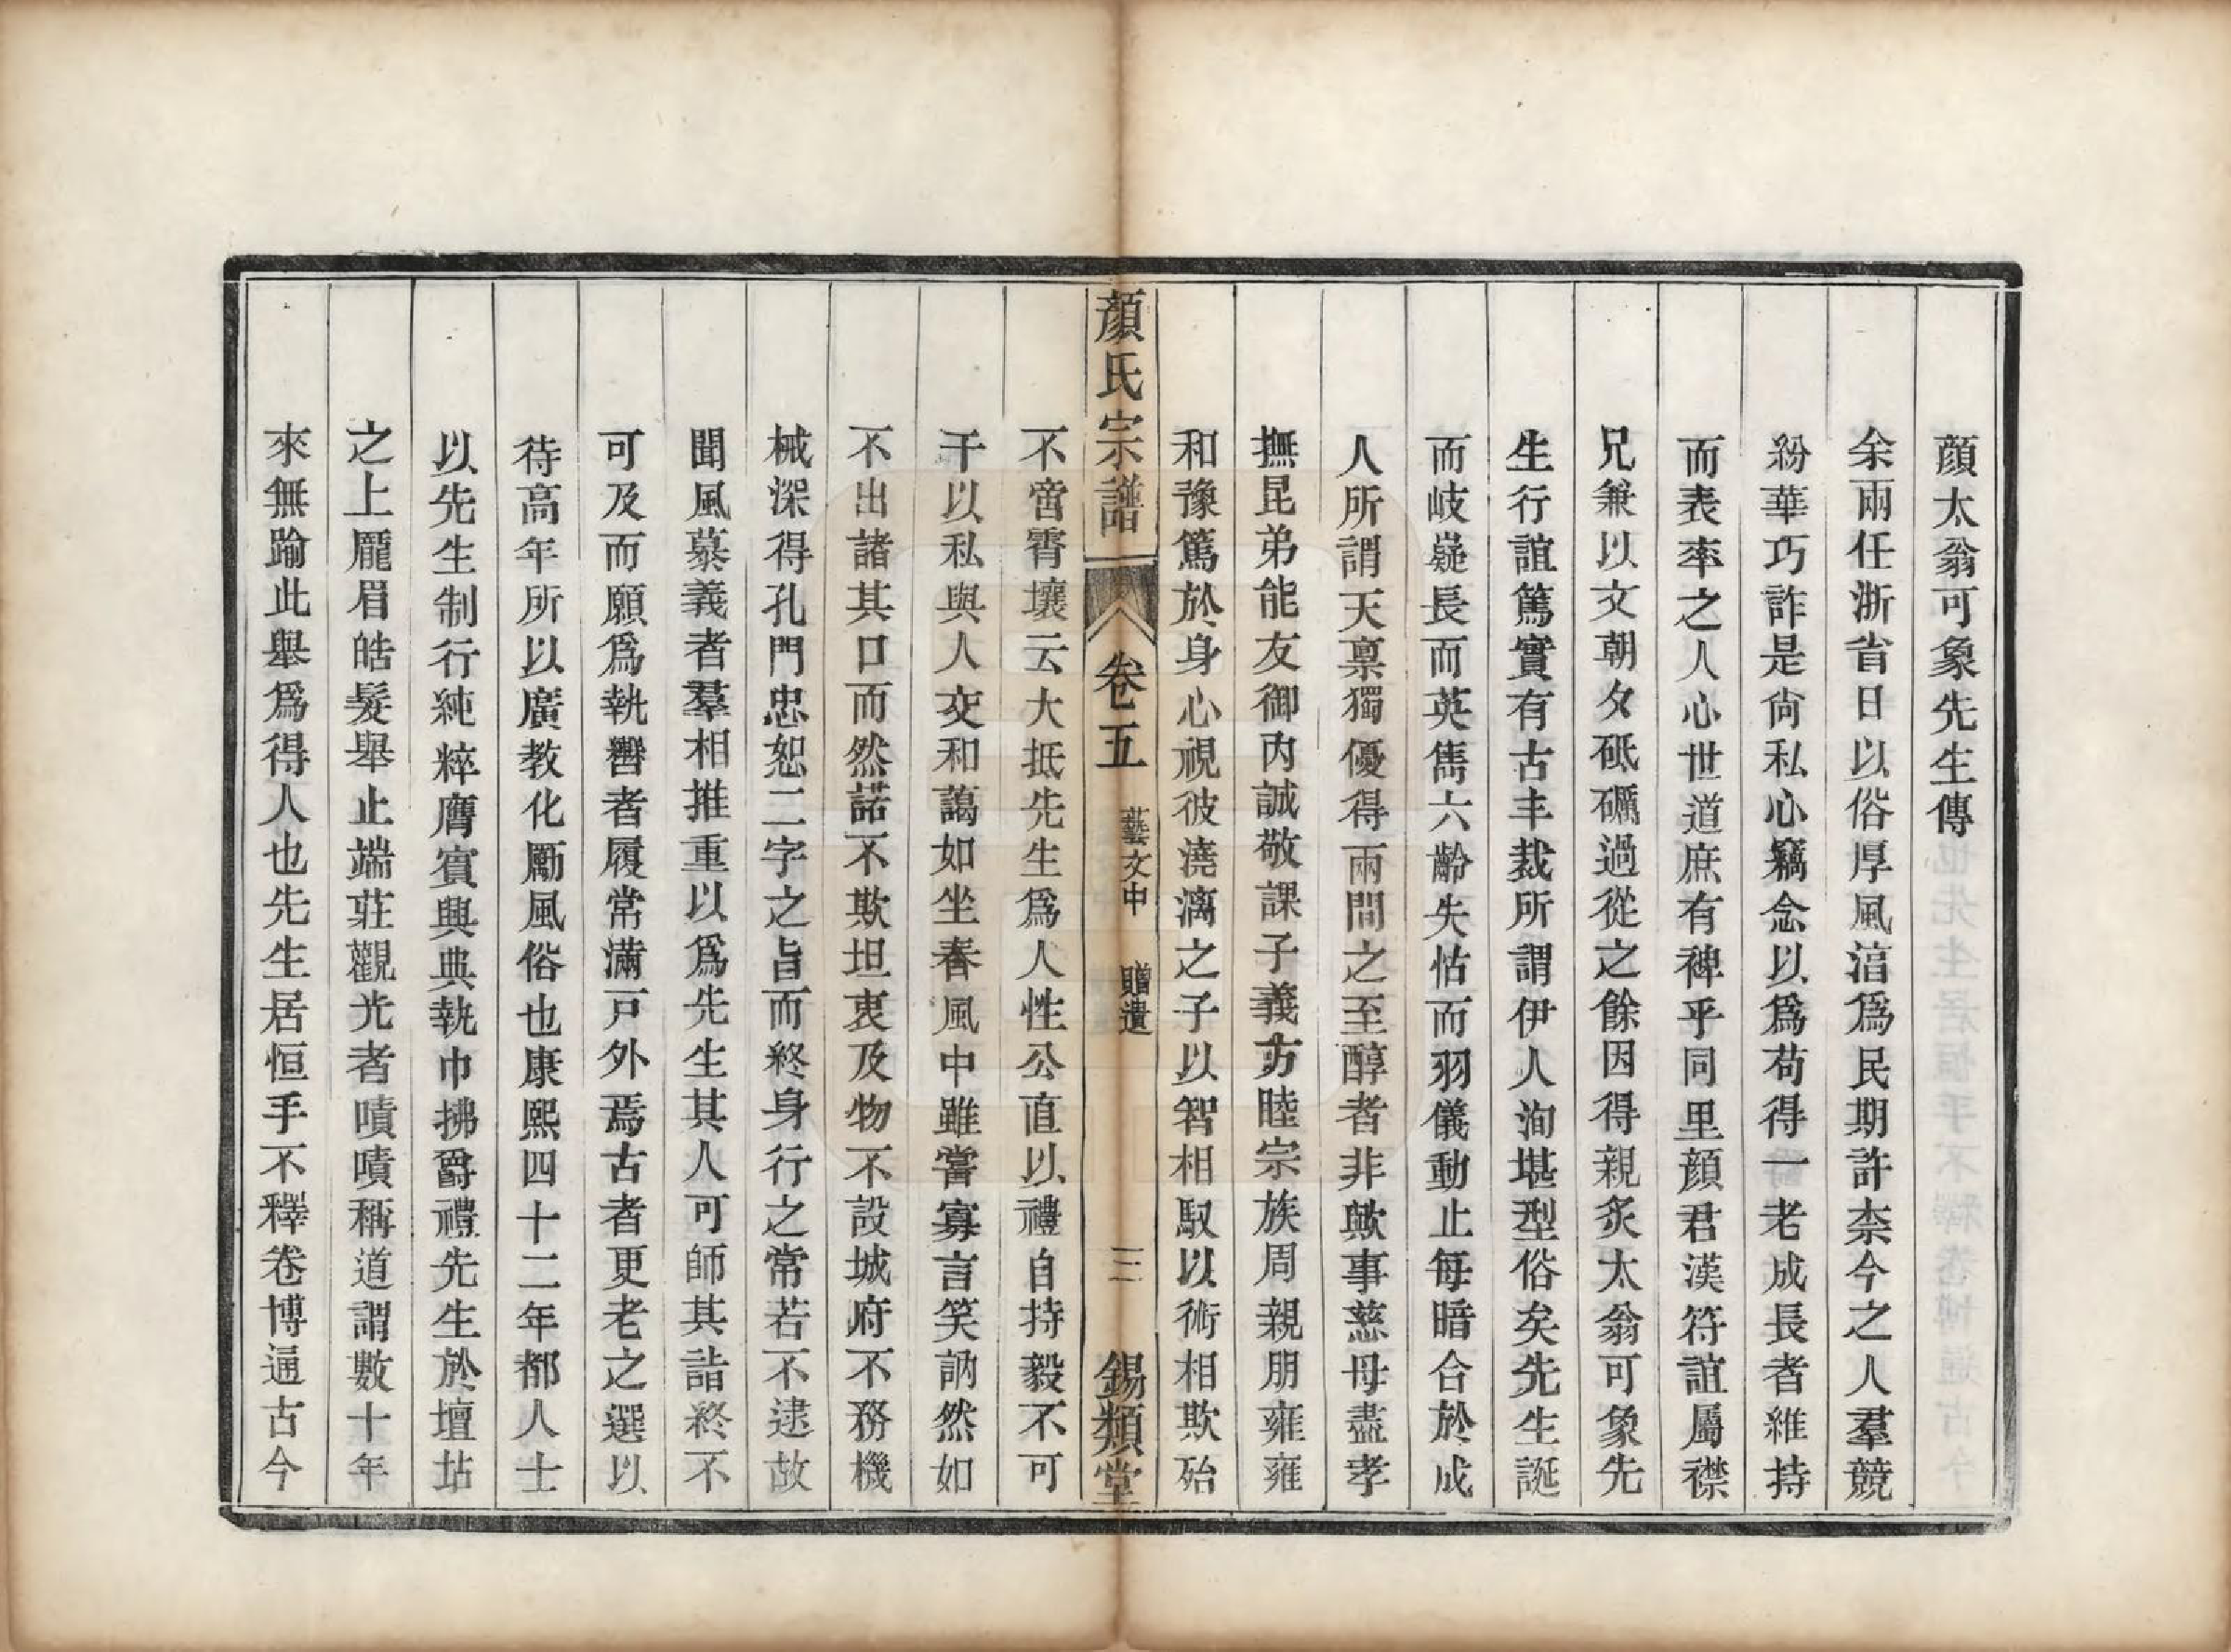 顏太翁可象先生傳
余兩任浙省日以俗厚風湻爲民期許柰今之人羣競
紛華巧詐是尙私心竊念以爲苟得一老成長者維持
而表率之人心世道庶有裨乎同里顏君漢符誼屬襟
兄兼以文朝夕砥礪過從之餘因得親炙太翁可象先
生行誼篤實有古丰裁所謂伊人洵堪型俗矣先生誕
而岐嶷長而英雋六齡失怙而羽儀動止每暗合於成
人所謂天稟獨優得兩間之至醇者非歟事慈母盡孝
撫昆弟能友御內誠敬課子義方睦宗族周親朋雍雍
和豫篤於身心視彼澆漓之子以智相馭以術相欺殆
顏氏宗譜
卷五
藝文中 贈遺
三
錫類堂
不啻霄壤云大抵先生爲人性公直以禮自持毅不可
干以私與人交和藹如坐春風中雖嘗寡言笑訥然如
不出諸其口而然諾不欺坦衷及物不設城府不務機
械深得孔門忠恕二字之旨而終身行之常若不逮故
聞風慕義者羣相推重以爲先生其人可師其詣終不
可及而願爲執轡者履常滿戸外焉古者更老之選以
待高年所以廣教化勵風俗也康熙四十二年都人士
以先生制行純粹膺賓興典執巾拂爵禮先生於壇坫
之上龎眉皓髮舉止端莊觀光者嘖嘖稱道謂數十年
來無踰此舉爲得人也先生居恒手不釋卷博通古今